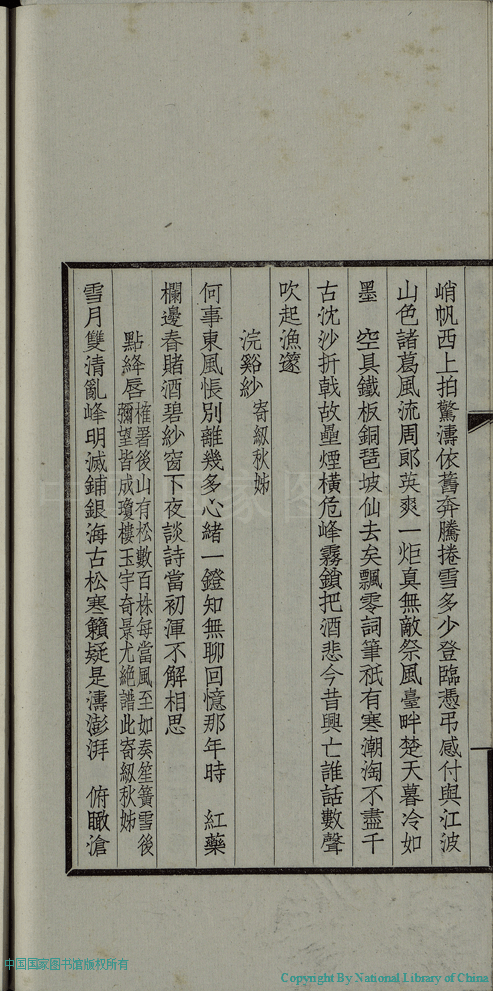 峭帆西上拍驚濤依舊奔騰捲雪多少登臨憑弔感付與江波
山色諸葛風流周郎英爽一炬真無敵祭風臺畔楚天暮冷如
墨　空具鐵板銅琶坡仙去矣飄零詞筆祇有寒潮淘不盡千
古沈沙折戟故壘煙橫危峰霧鎖把酒悲今昔興亡誰話數聲
吹起漁篴
浣谿紗　寄紉秋姊
何事東風悵別離幾多心緒一鐙知無聊回憶那年時　紅藥
欄邊春賭酒碧紗窗下夜談詩當初渾不解相思
點絳唇　榷署後山有松數百株每當風至如奏笙簧雪後
彌望皆成瓊樓玉宇奇景尤絕譜此寄紉秋姊
雪月雙清亂峰明滅鋪銀海古松寒籟疑是濤澎湃　俯瞰滄
中国国家图书馆版权所有
Copyright By National Library of China